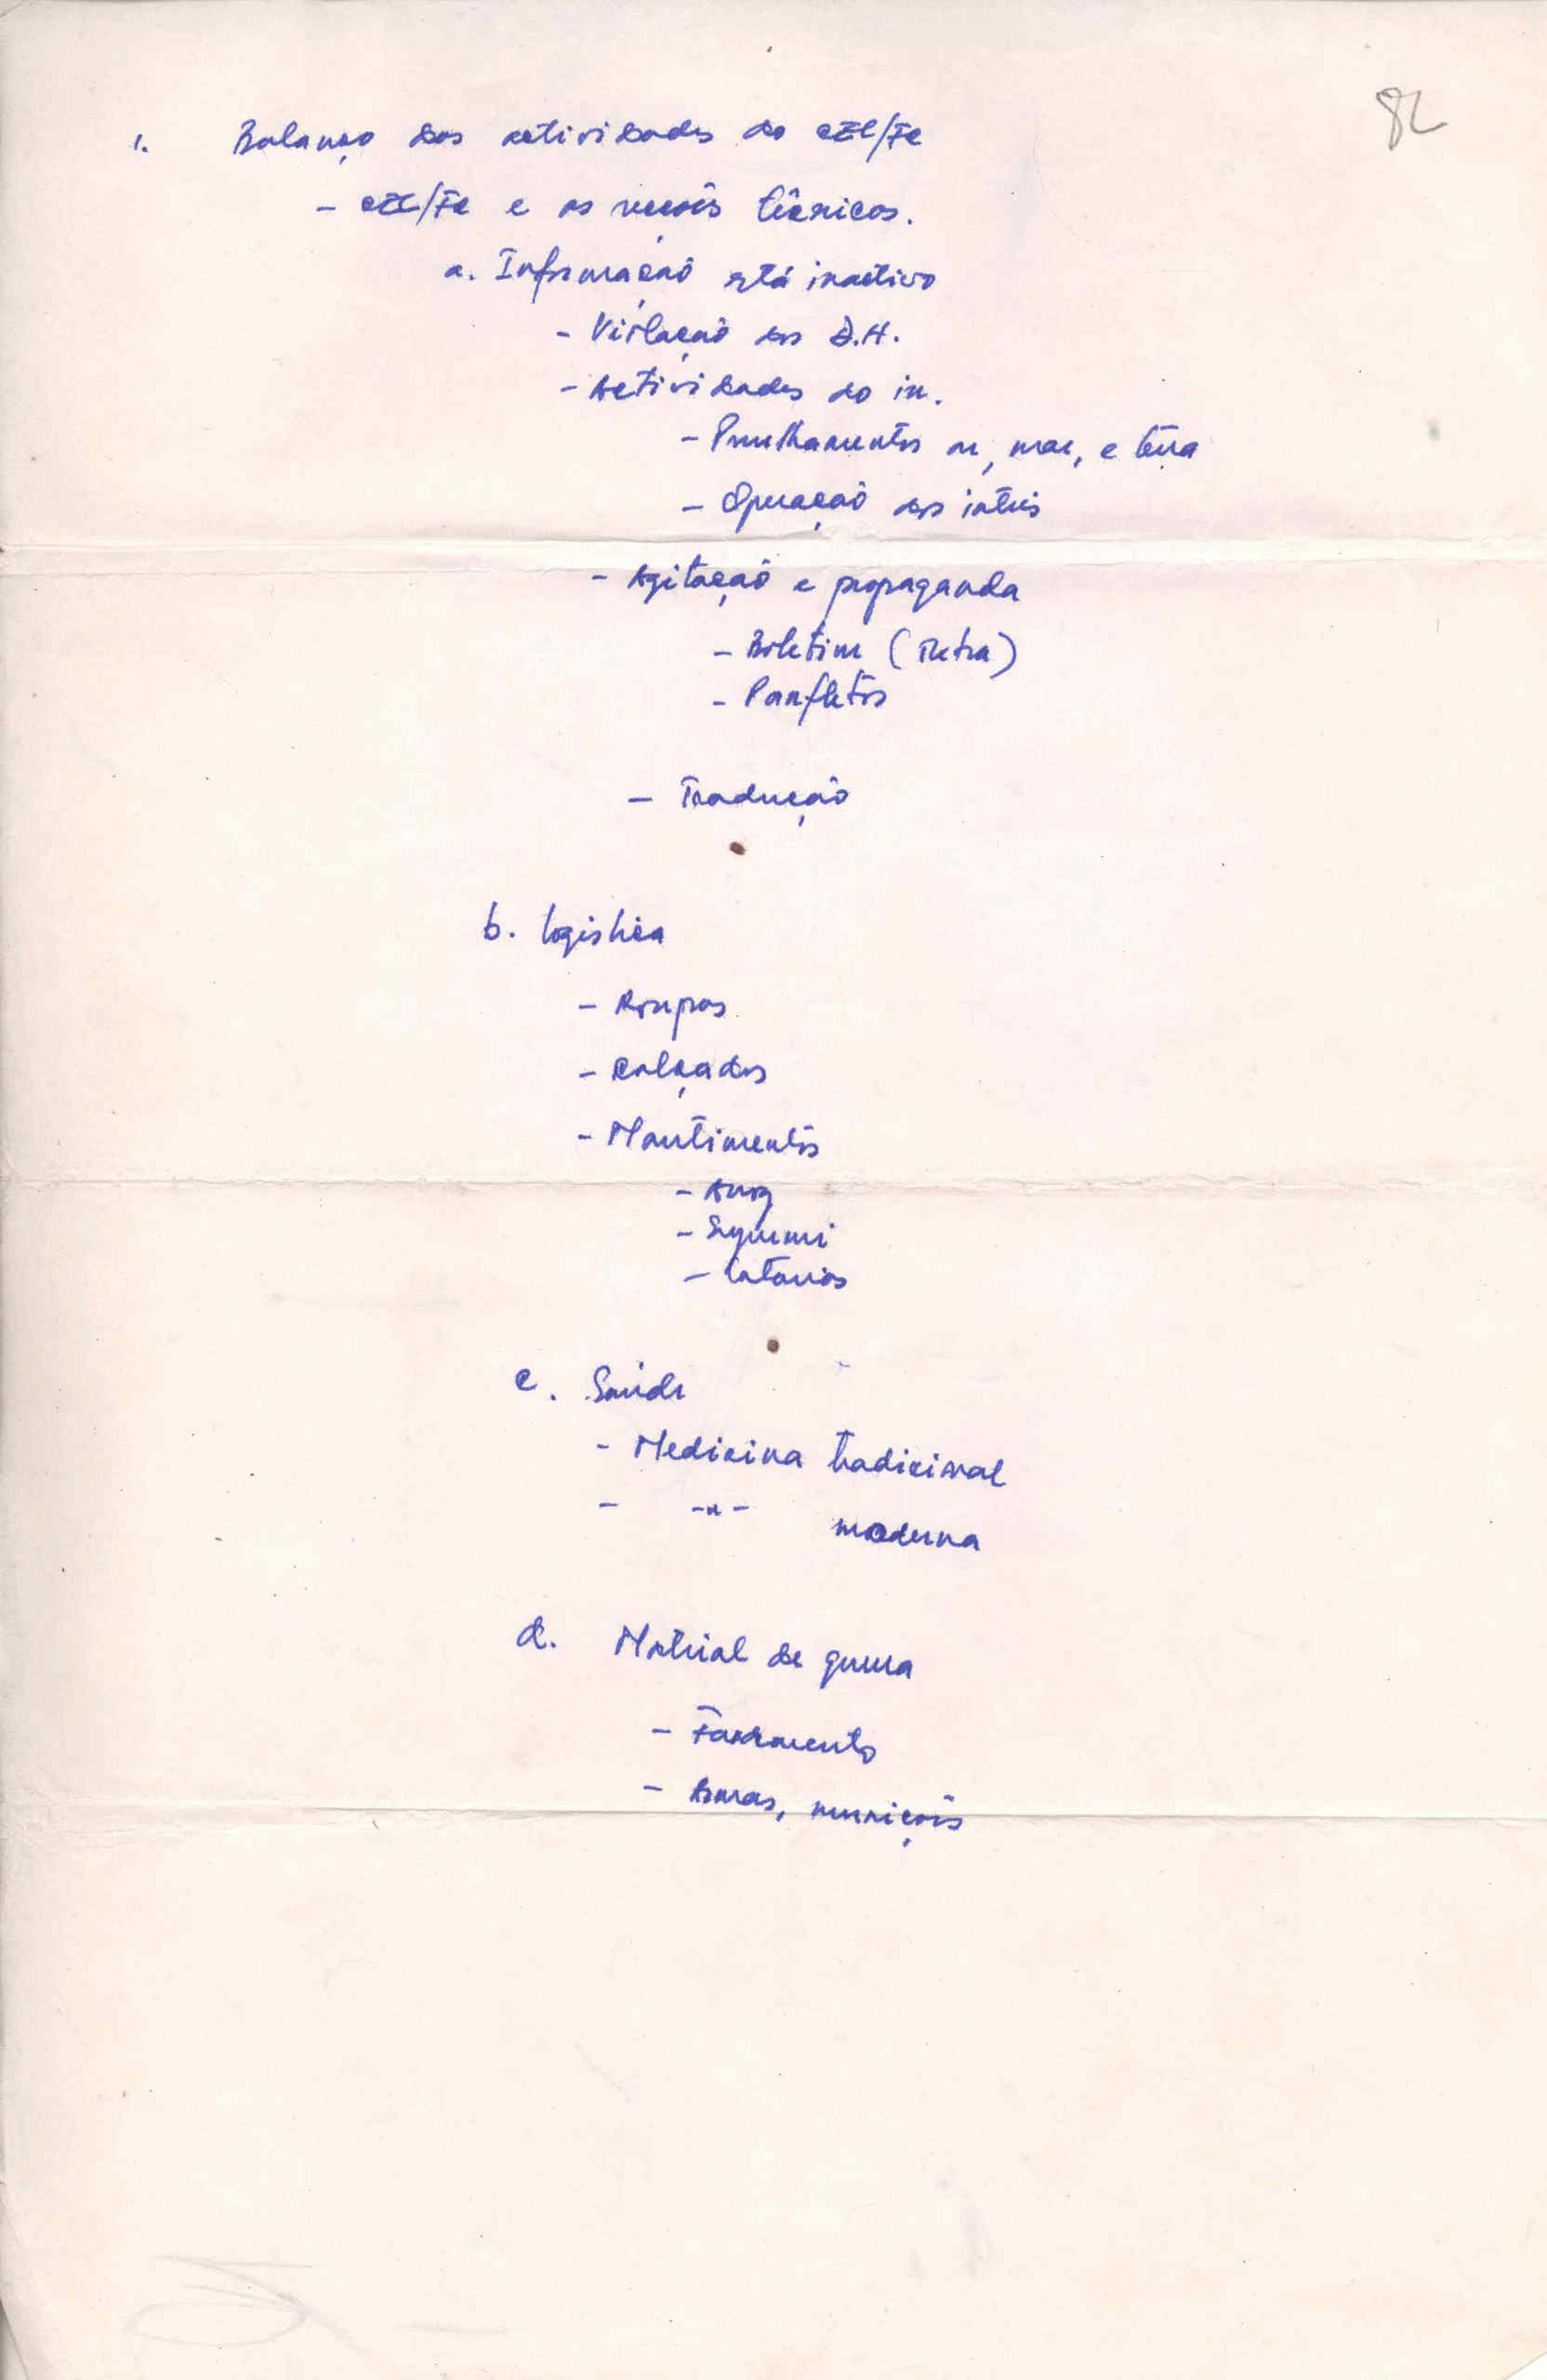 82
1. Balanço das actividades do CEL/FC
- CEL/FC e as secções técnicas.
a. Informação está inactivo
- Violação dos D.H.
- Actividades do in.
- ar, mar, e terra
- Operação dos
- Agitação e propaganda
- Boletim (Tetra)
- Panfletos
- Tradução
b. logistica
- Roupas
- Calçados
- Mantimentos
- Arroz
- Supermi
- Latarias
c. Saúde
- Medicina tradicional
- -"- moderna
d. Material de guerra
- Fardamento
- Armas, munições